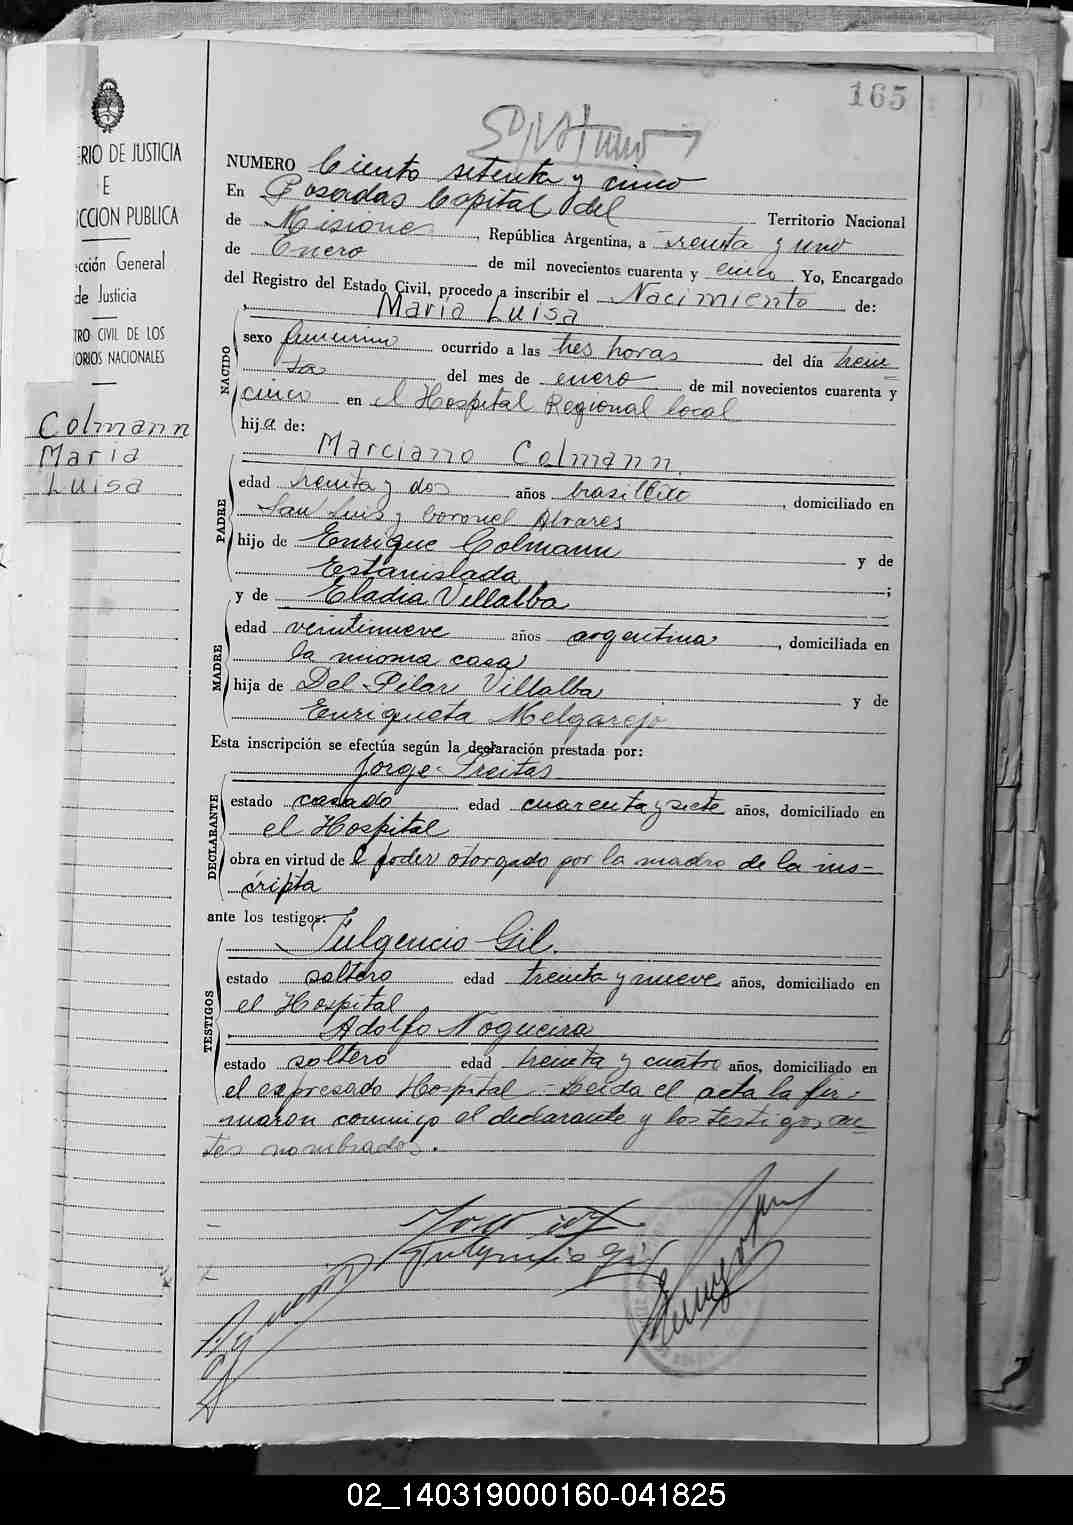 165
NUMERO Ciento setenta y cinco
En Posadas Capital del Territorio Nacional
de Misiones, República Argentina, a treinta y uno
de Enero de mil novecientos cuarenta y cinco Yo, Encargado
del Registro del Estado Civil, procedo a inscribir el Nacimiento de:
Maria Luisa
sexo femenino ocurrido a las tres horas del día trein
ta del mes de enero de mil novecientos cuarenta y
cinco en el Hospital Regional local
hija de:
NACIDO
Marciano Colmann.
edad treinta y dos años brasilero, domiciliado en
San Luis y Coronel Alvares
hijo de Enrique Colmann y de
Estanislada ;
PADRE
y de Eladia Villalba
edad veintinueve años argentina, domiciliada en
la misma casa
hija de Del Pilar Villalba y de
Enriqueta Melgarejo
MADRE
Esta inscripción se efectúa según la declaración prestada por:
Jorge Freitas
estado casado edad cuarenta y siete años, domiciliado en
el Hospital
obra en virtud de el poder otorgado por la madre de la ins-
cripta
DECLARANTE
ante los testigos:
Fulgencio Gil.
estado soltero edad treinta y nueve años, domiciliado en
el Hospital
Adolfo Nogueira
estado soltero edad treinta y cuatro años, domiciliado en
TESTIGOS
el expresado Hospital - Leida el acta la fir-
maron conmigo el declarante y los testigos an-
tes nombrados.
Fulgencio Gil
ERIO DE JUSTICIA
E
CCION PUBLICA
cción General
de Justicia
TRO CIVIL DE LOS
TORIOS NACIONALES
Colmann
Maria
Luisa
02_140319000160-041825